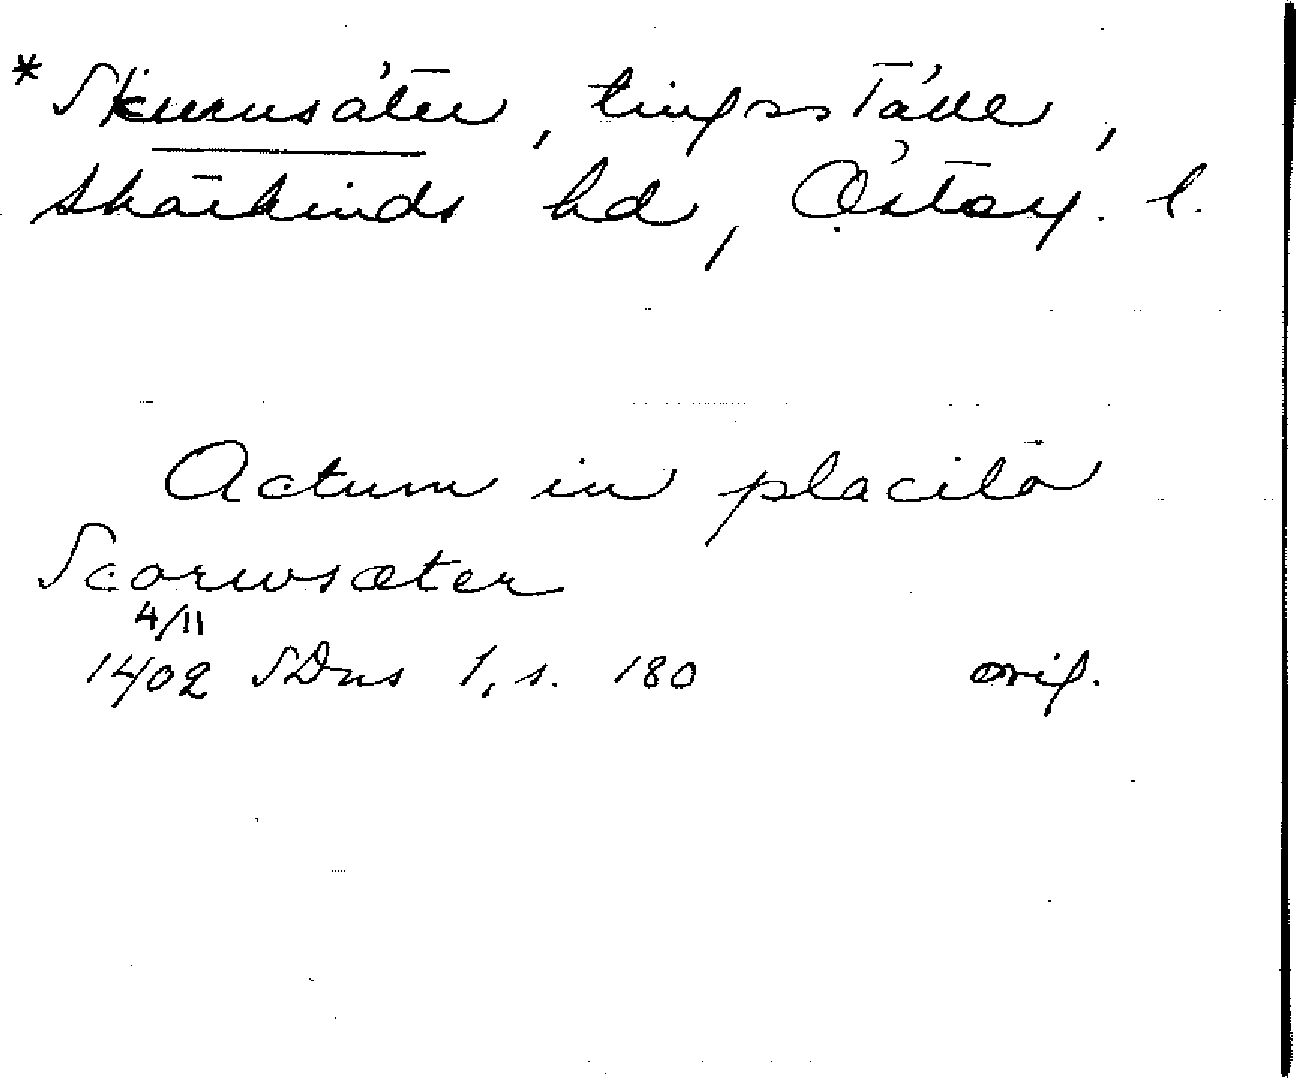 * Skeurusäter, tingsställe,
Skärkinds hd, Östерg. l.
Actum in placito
Scorwsæter
4/11
1402 SDns 1, s. 180 orig.